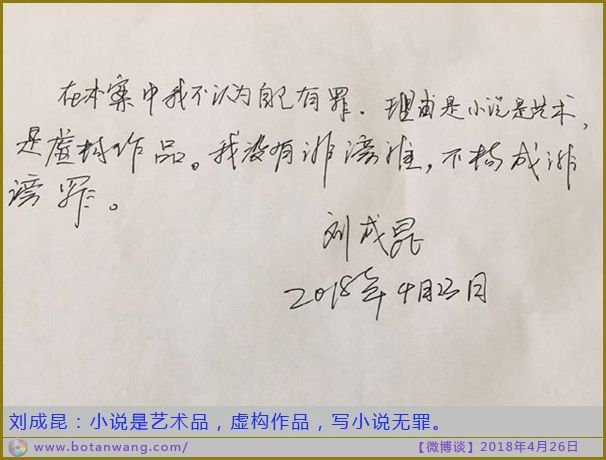 在本案中我不认为自己有罪．理由是小说是艺术，
是虚构作品。我没有诽谤谁，不构成诽
谤罪。
刘成昆
2018年4月23日
刘成昆：小说是艺术品，虚构作品，写小说无罪。
www.botanwang.com/
【微博谈】2018年4月26日